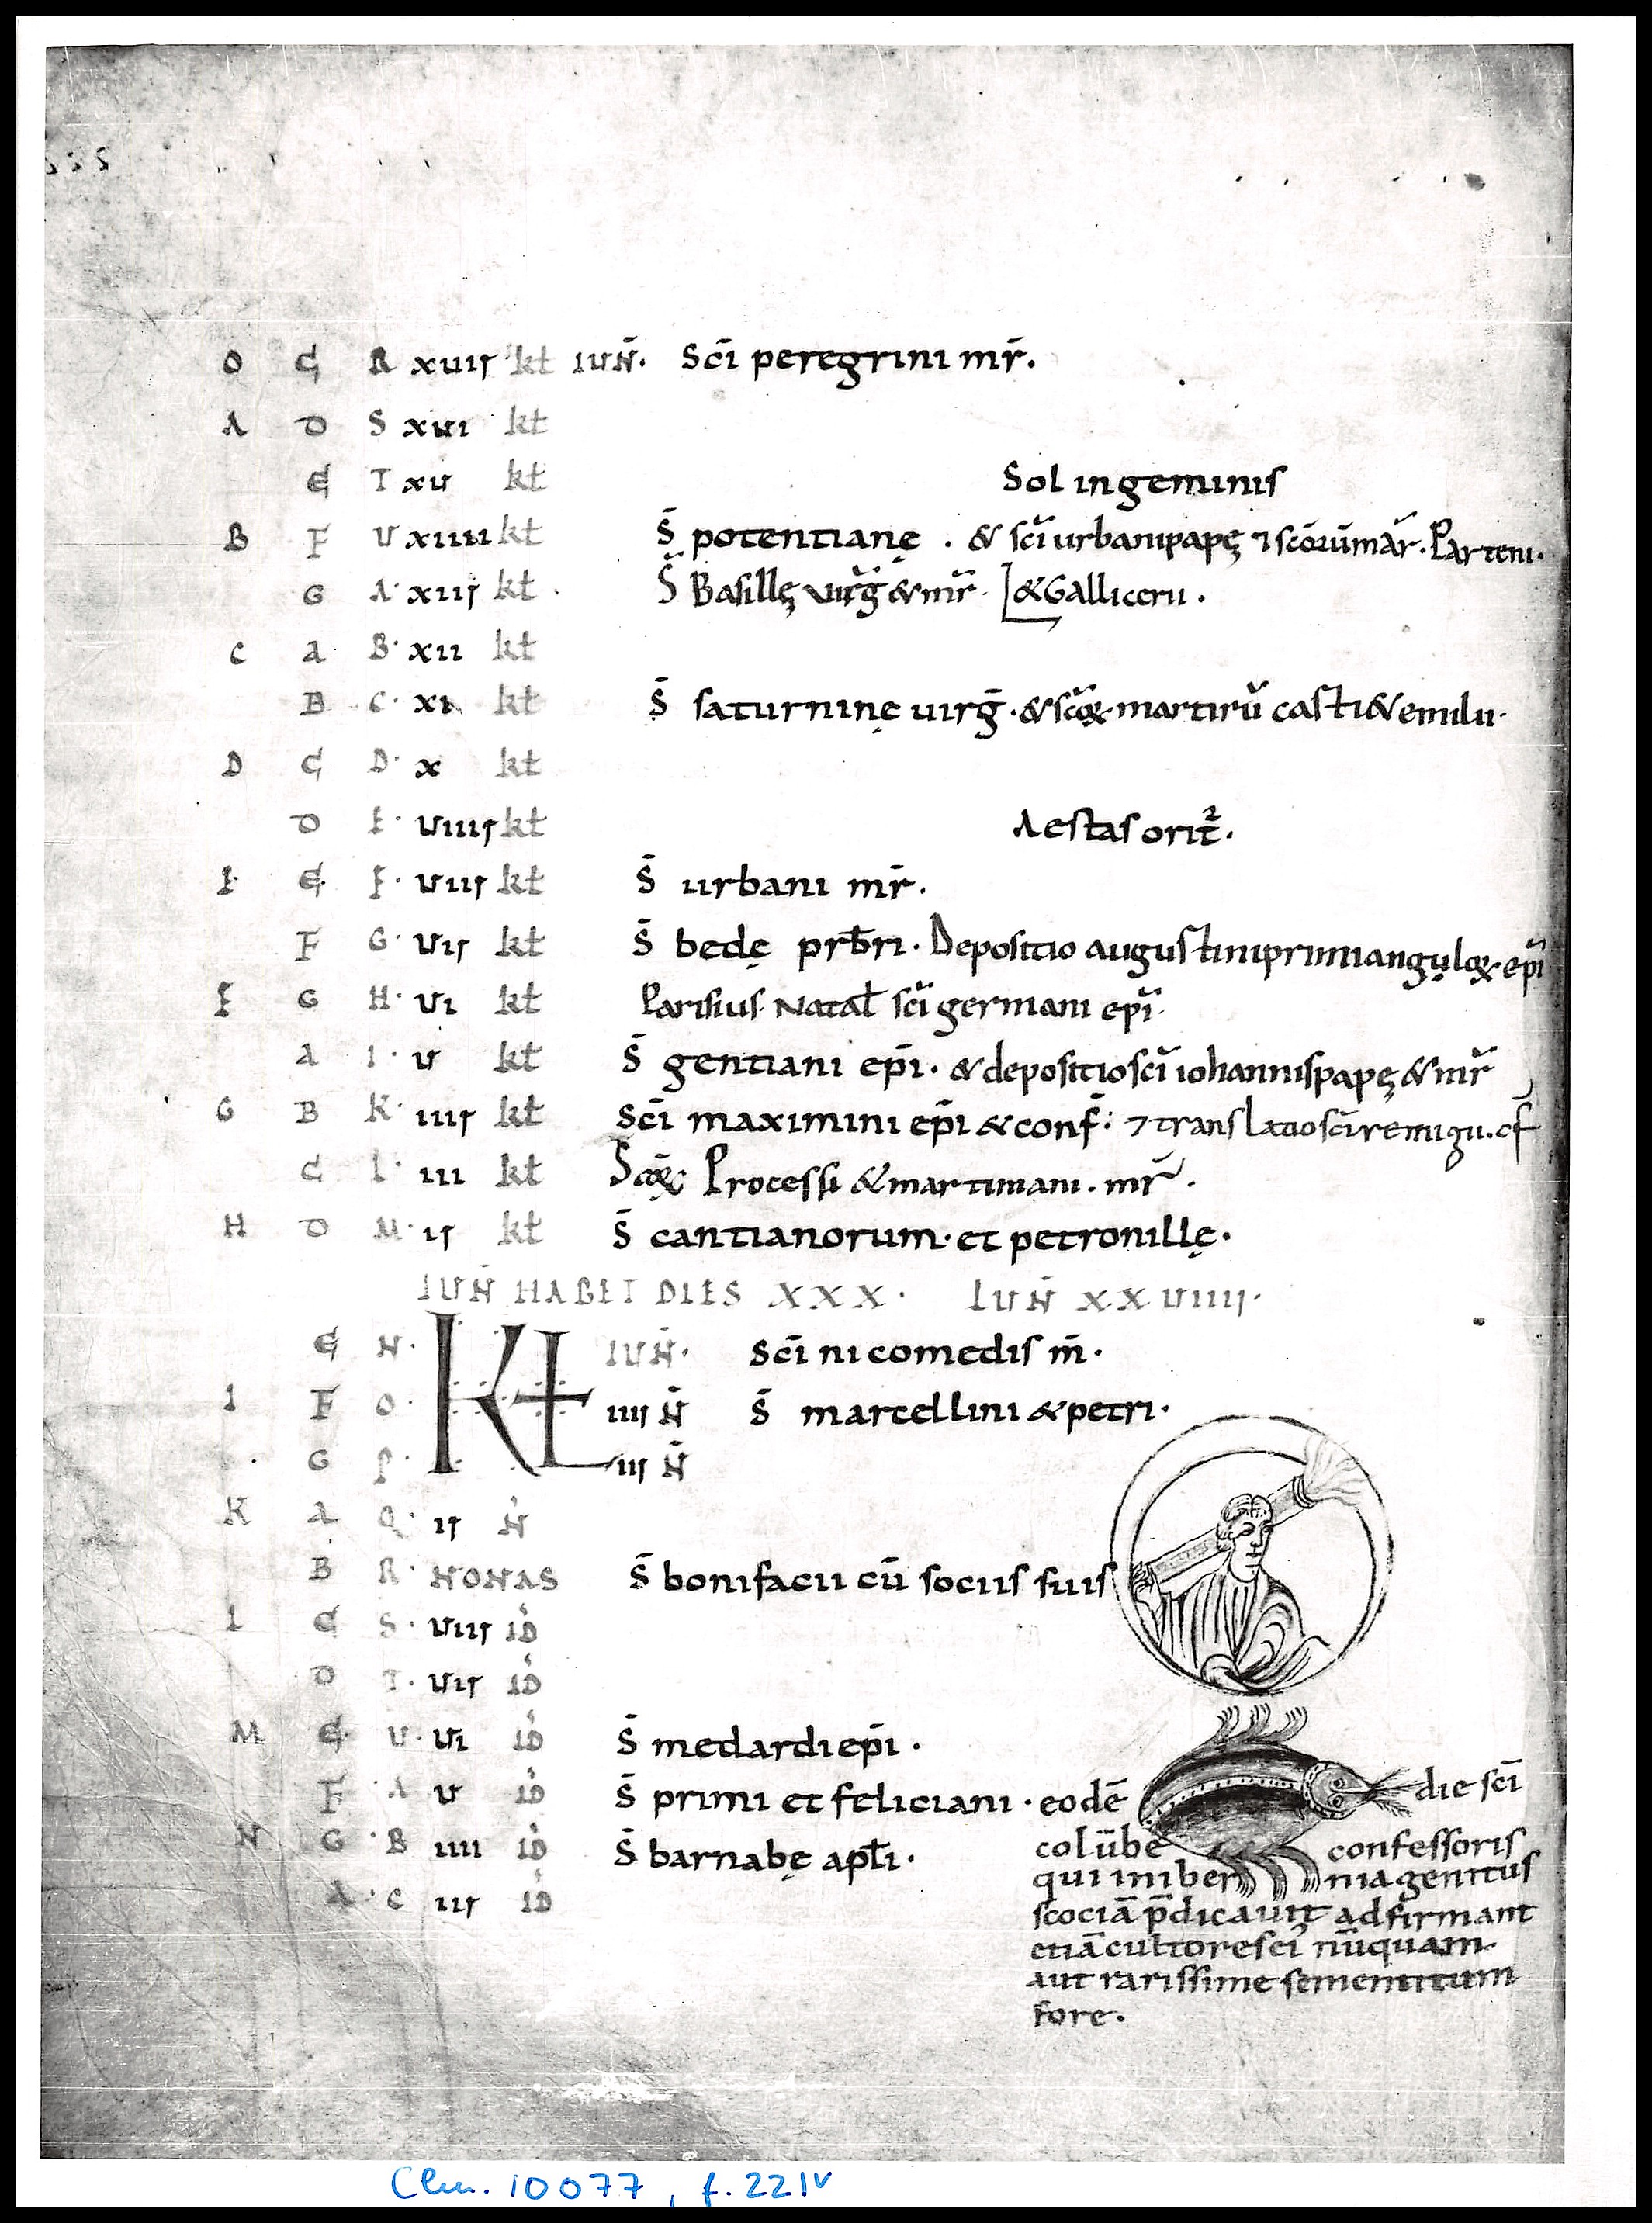 O C R xuıȷ kł IUN̄. Scī peregrini mr̄.
A D S xuı kł
E T xu kł
Sol in geminis
B F U xıııı kł S̄ potentianę . & scī urbani papę ⁊ scōrūm mār̄. Parteni.
G A xııȷ kł . S̄ Basillę uirḡ & mr̄. & Galliceni .
C a B xıı kł
B C xı kł S̄ saturninę uirḡ · & scōꝝ martirū casti & emilii ·
D C D x kł
D E uıııȷ kł Aestas orit᷑.
E E F uııȷ kł S̄ urbani mr̄.
F G uıȷ kł S̄ bedę prb̄ri. Depositio augustini primi anguloꝝ ep̄i
F G H uı kł Parisius. Natal̄ scī germani ep̄i.
a I u kł S̄ gentiani ep̄i. & depositio scī iohannis papę & mr̄
G B K ıııȷ kł Scī maximini ep̄i & conf̄. ⁊ translatio scī remigii. cf̄
C L ııı kł Scōꝝ Processi & martiniani. mr̄.
H D M ıȷ kł S̄ cantianorum· et petronillę.
IUN̄ HABET DIES XXX. LUN̄ XXUIIII.
E N KL IUN̄. Scī nicomedis m̄.
I F O ıııȷ N̄ S̄ marcellini & petri.
G P ııȷ N̄
K A Q ıȷ N̄
B R NONAS S̄ bonifacii cū sociis suis
L C S uııȷ ID
D T uıȷ ID
M E U uı ID S̄ medardi ep̄i .
F A u ID S̄ primi et feliciani . eodē die scī
N G B ıııı ID S̄ barnabę apłi.
A C ııȷ ID
colūbe confessoris
qui in ibernia genitus
scociā p̄dicauit adfirmant
etiā cultores ei nūquam
aut rarissime sementitum
fore.
Clm. 10077, f. 221v